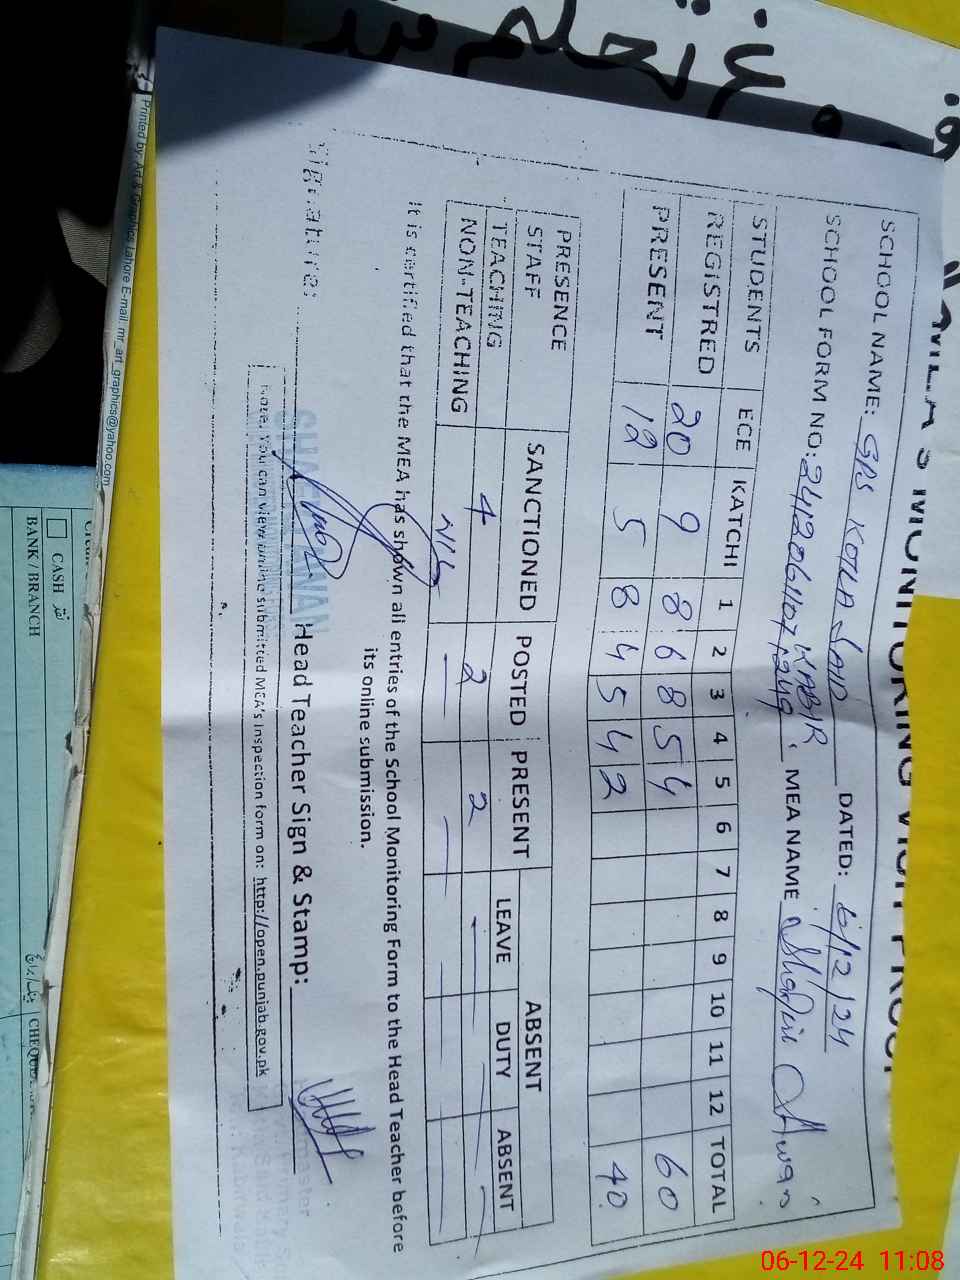 MEA'S MONITORING VISIT PROOF
SCHOOL NAME: GPS KOTLA SAID KABIR DATED: 6/12/24
SCHOOL FORM NO: MEA NAME Shafiu Awan
STUDENTS ECE KATCHI 1 2 3 4 5 6 7 8 9 10 11 12 TOTAL
REGISTRED 20 9 8 6 8 5 4 60
PRESENT 12 5 8 4 5 4 2 40
PRESENCE STAFF SANCTIONED POSTED PRESENT ABSENT
LEAVE DUTY ABSENT
TEACHING 4 2 2 - - -
NON-TEACHING NIL - - - - -
It is certified that the MEA has shown all entries of the School Monitoring Form to the Head Teacher before
its online submission.
Signature: Head Teacher Sign & Stamp:
Note: You can view online submitted MEA's Inspection form on: http://open.punjab.gov.pk
Printed by: Art & Graphics Lahore E-mail: mr_art_graphics@yahoo.com
CASH نقد
BANK / BRANCH
06-12-24 11:08